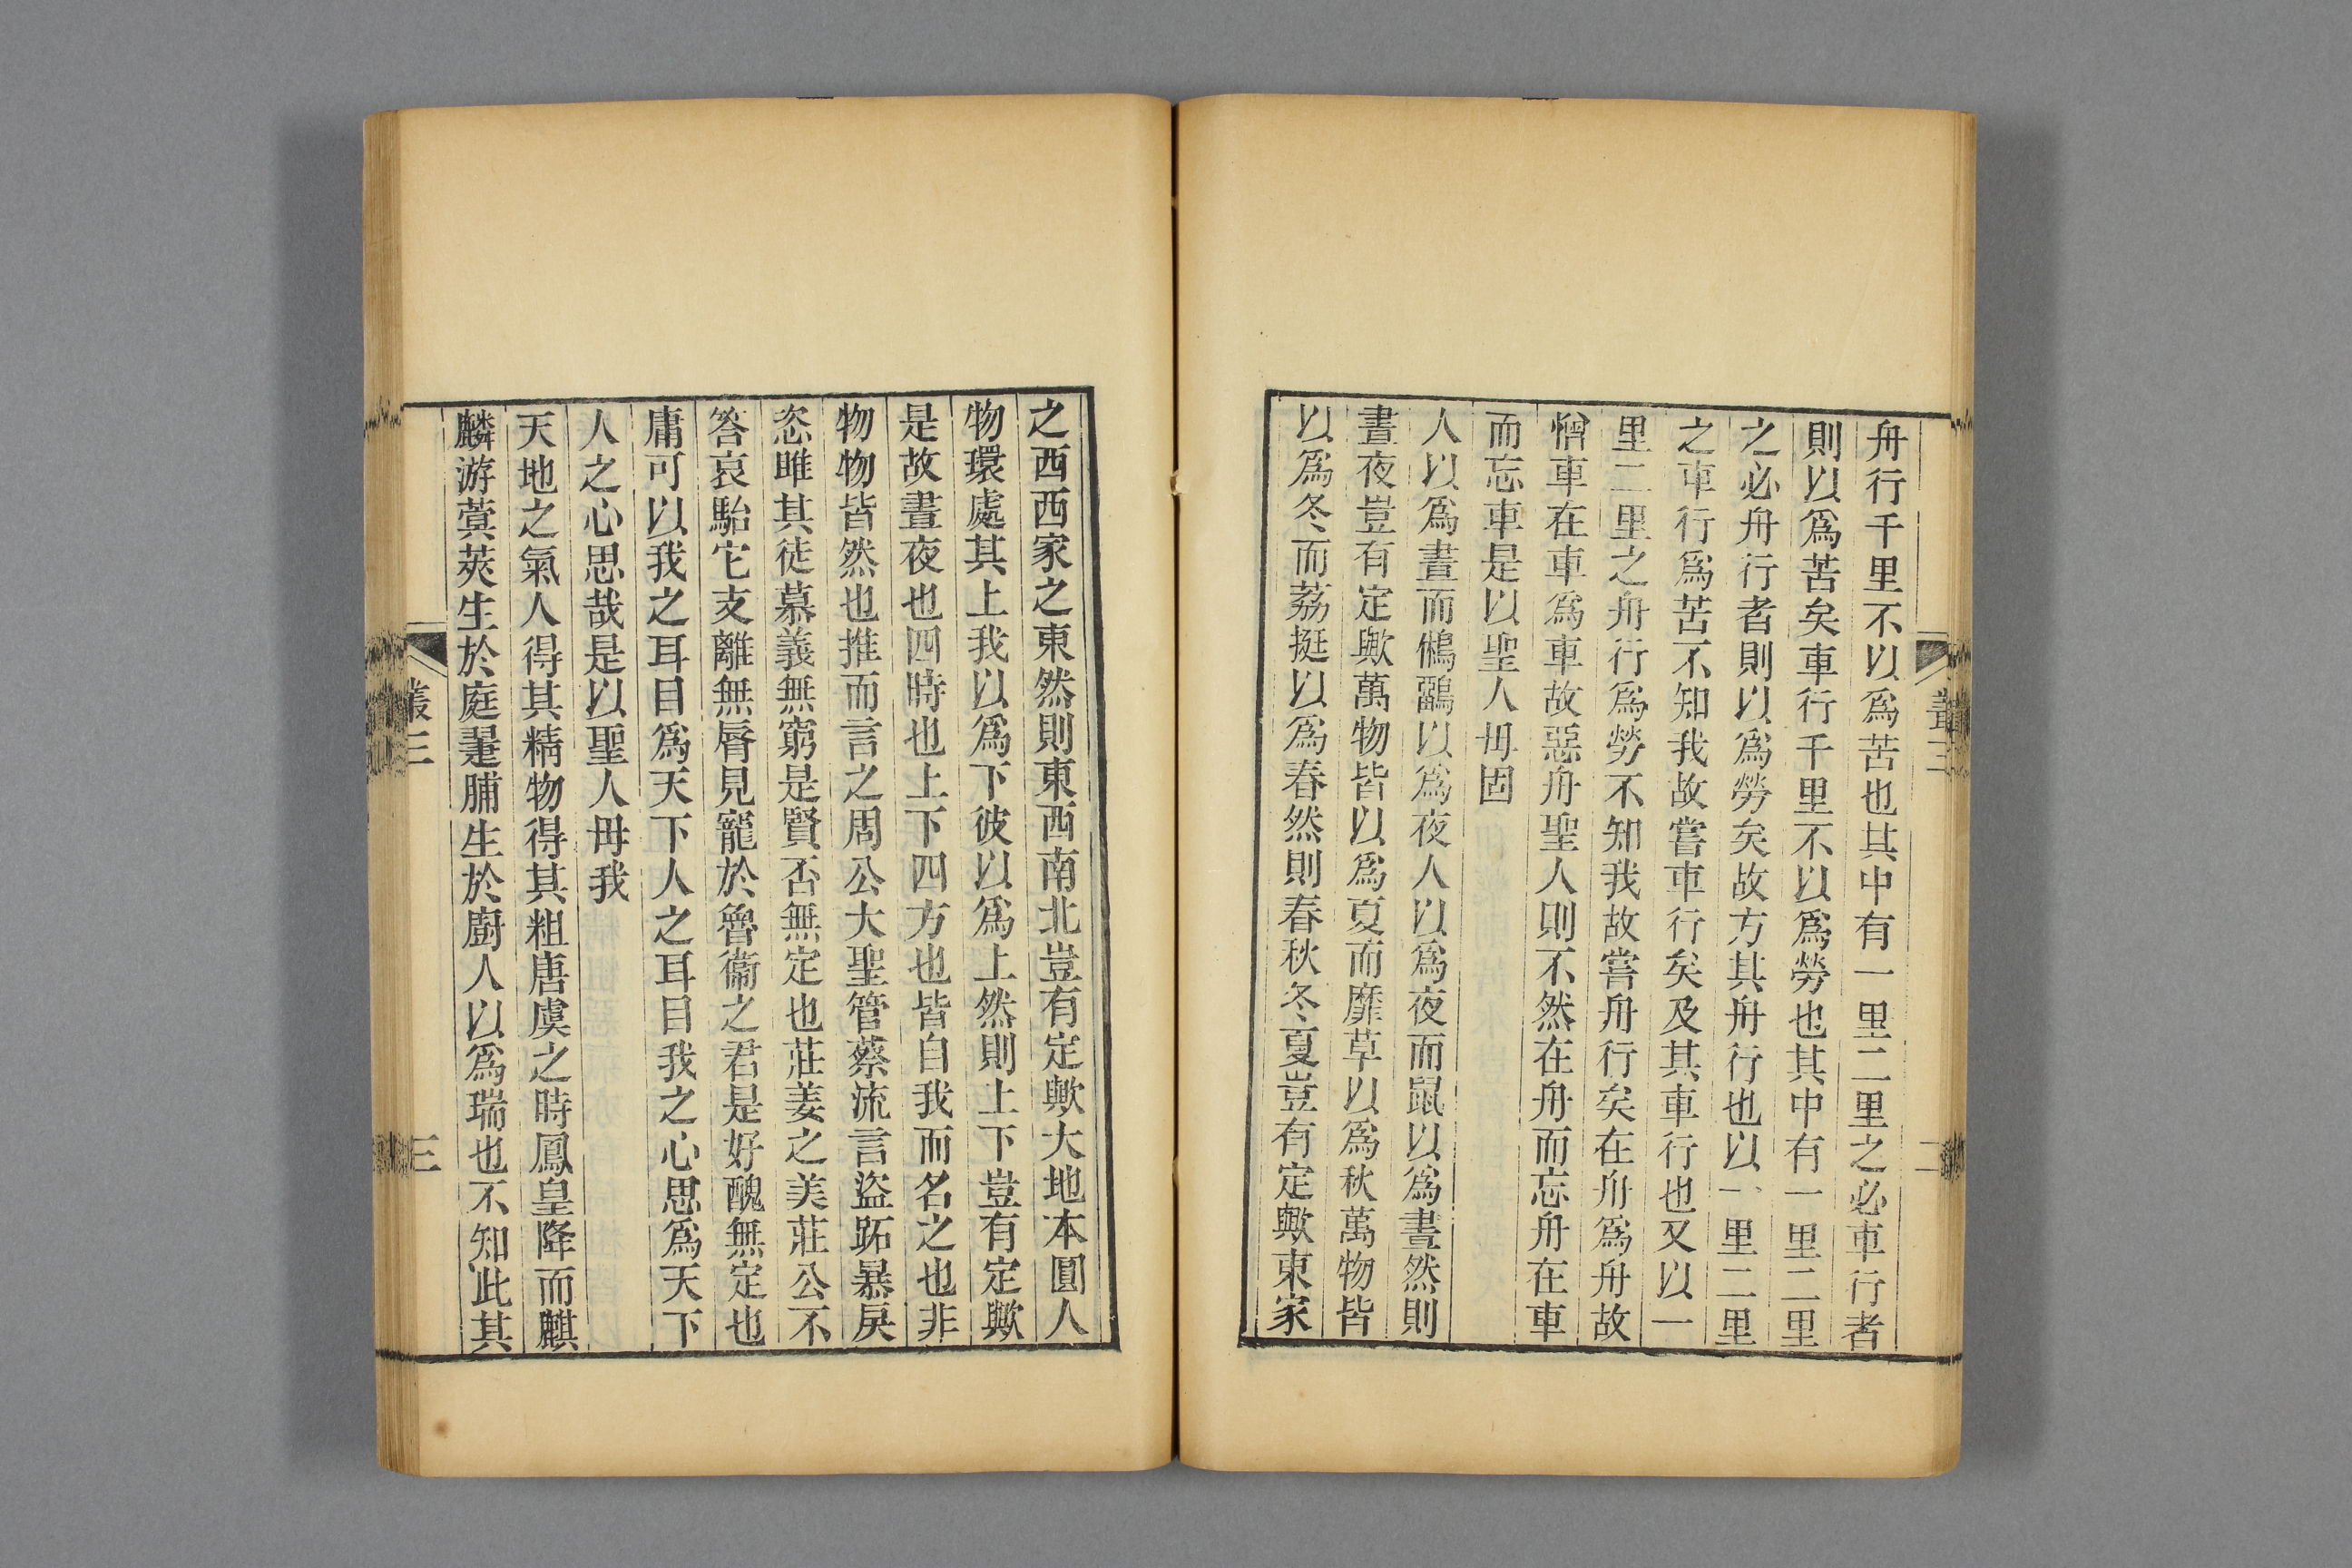 舟行千里不以爲苦也其中有一里二里之必車行者
則以爲苦矣車行千里不以爲勞也其中有一里二里
之必舟行者則以爲勞矣故方其舟行也以一里二里
之車行爲苦不知我故嘗車行矣及其車行也又以一
里二里之舟行爲勞不知我故嘗舟行矣在舟爲舟故
憎車在車爲車故惡舟聖人則不然在舟而忘舟在車
而忘車是以聖人毋固
人以爲晝而鵂鶹以爲夜人以爲夜而鼠以爲晝然則
晝夜豈有定歟萬物皆以爲夏而靡草以爲秋萬物皆
以爲冬而荔挺以爲春然則春秋冬夏豈有定歟東家
叢三
二
之西西家之東然則東西南北豈有定歟大地本圓人
物環處其上我以爲下彼以爲上然則上下豈有定歟
是故晝夜也四時也上下四方也皆自我而名之也非
物物皆然也推而言之周公大聖管蔡流言盜跖暴戾
恣睢其徒慕義無窮是賢否無定也莊姜之美莊公不
答哀駘它支離無脣見寵於魯衞之君是好醜無定也
庸可以我之耳目爲天下人之耳目我之心思爲天下
人之心思哉是以聖人毋我
天地之氣人得其精物得其粗唐虞之時鳳皇降而麒
麟游蓂莢生於庭萐脯生於廚人以爲瑞也不知此其
叢三
三